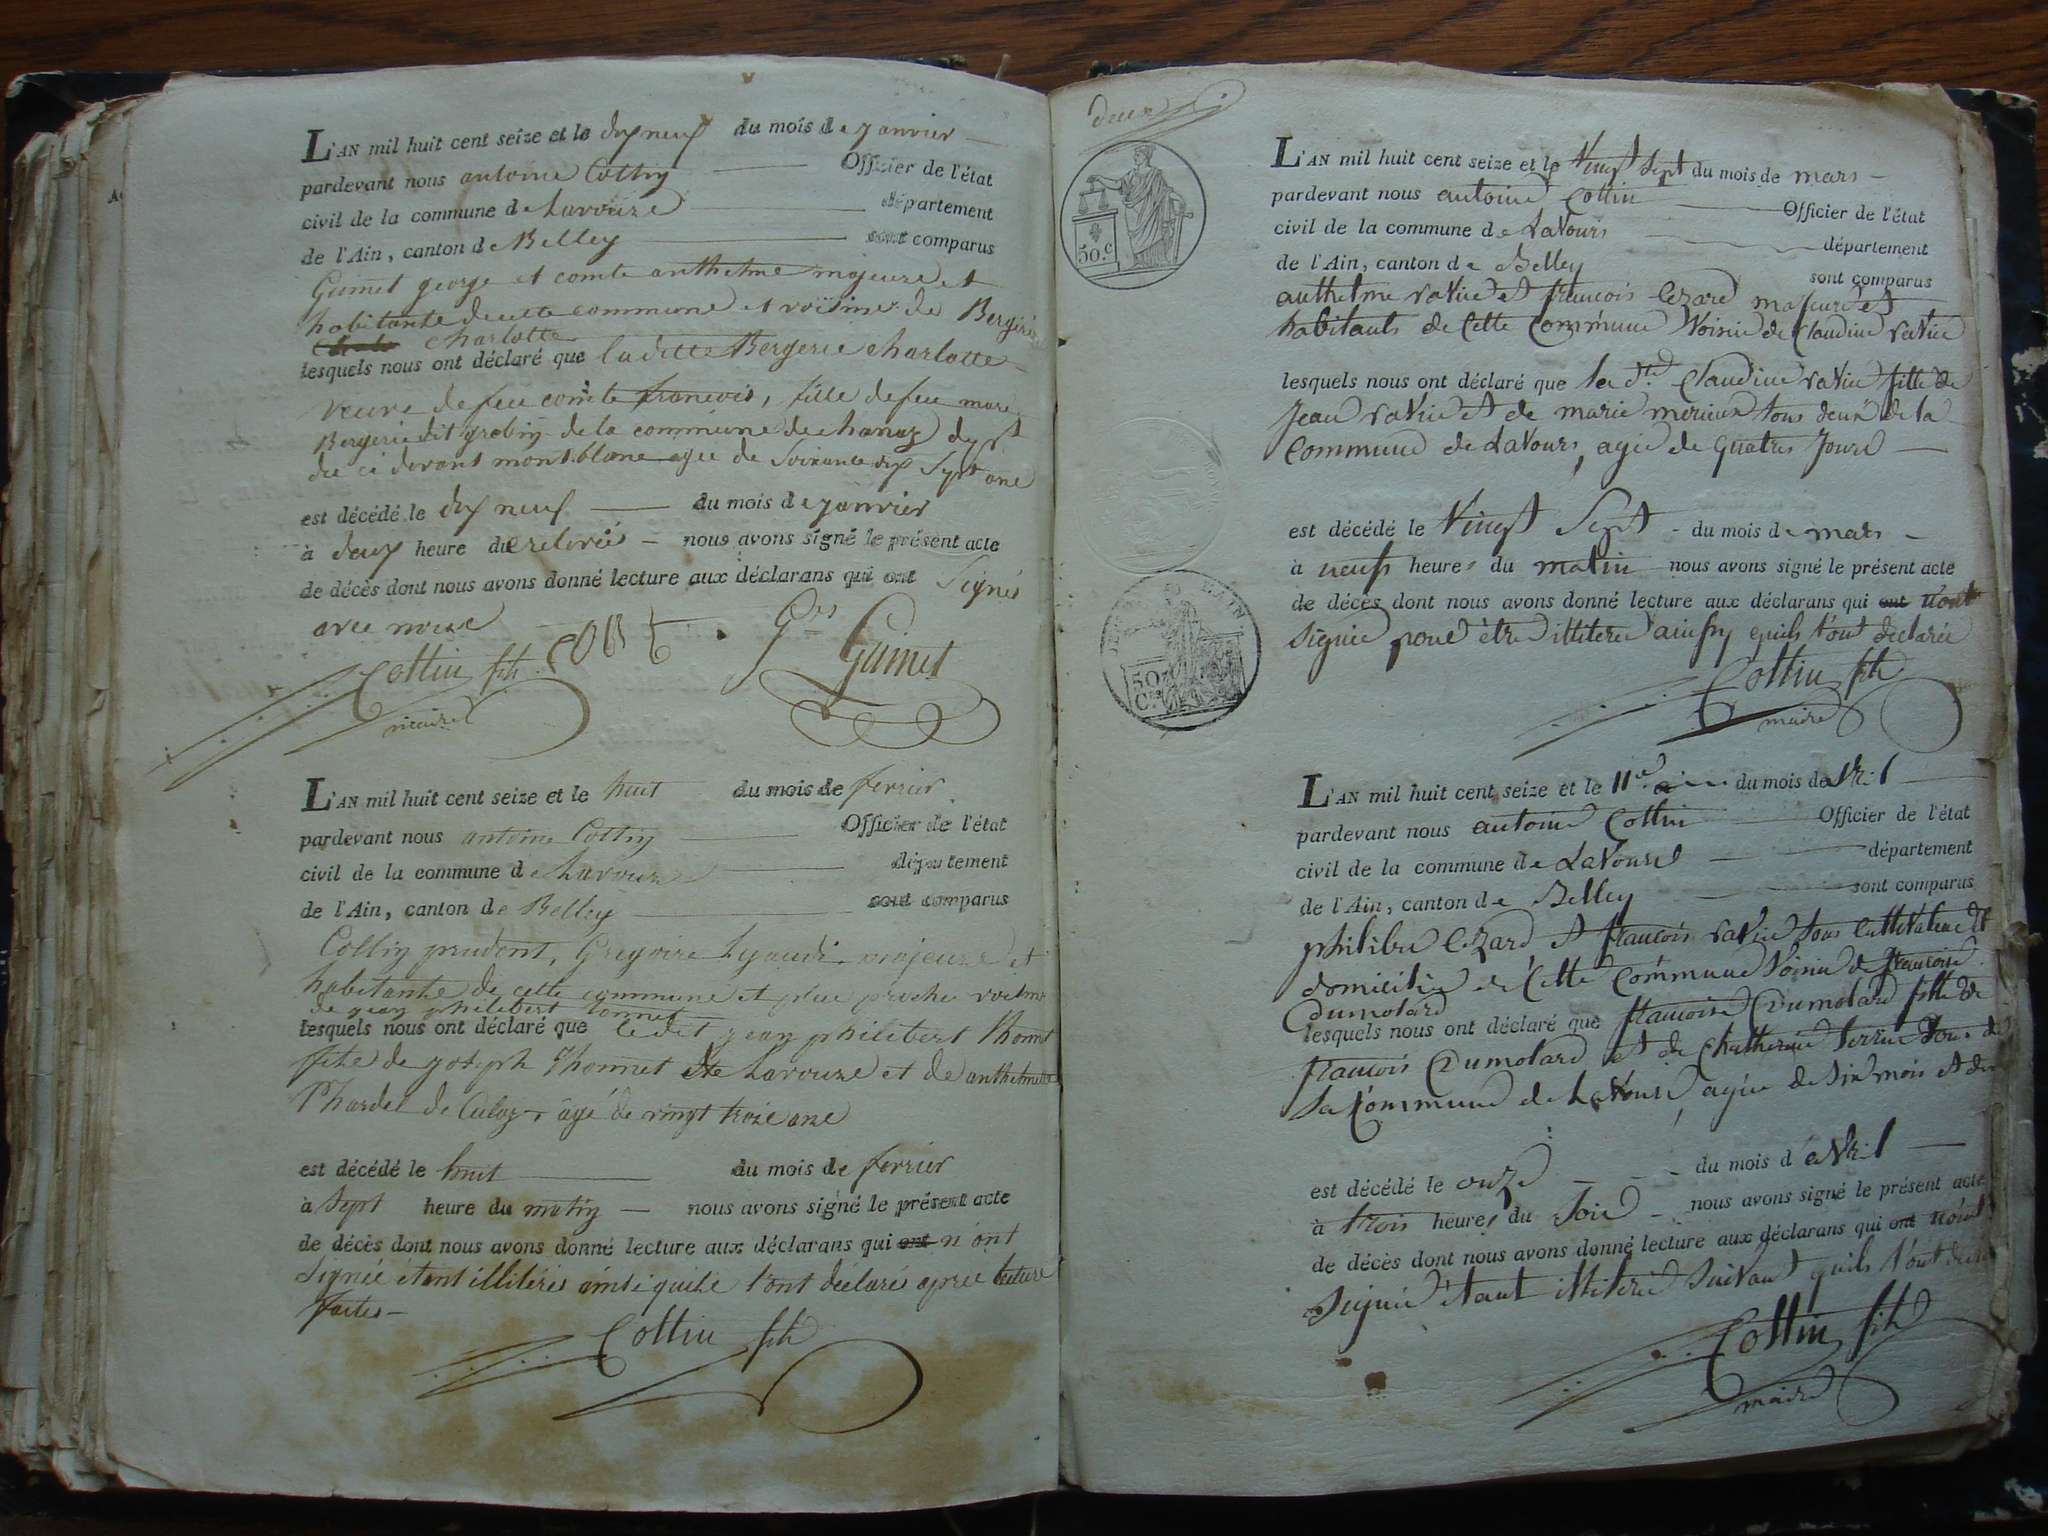 L'AN mil huit cent seize et le dix neuf du mois de janvier
pardevant nous antoine Cottin Officier de l'état
civil de la commune de Lavourse département
de l'Ain, canton de Belley sont comparus
Guinet george et comte anthelme majeure et
habitante de cette commune et voisine de Bergerie
charlotte
lesquels nous ont déclaré que laditte Bergerie charlotte
veuve de feu comte francois, fille de feu marc
Bergerie dit de la commune de chanaz dept
du ci devant montblanc agee de Soixante dix Sept ans
est décédé le dix neuf du mois de janvier
à deux heure du relevée nous avons signé le présent acte
de décès dont nous avons donné lecture aux déclarans qui ont Signés
avec nous
Cottin fils
Guinet
maire
L'AN mil huit cent seize et le huit du mois de fevrier
pardevant nous antoine Cottin Officier de l'état
civil de la commune de Lavourse département
de l'Ain, canton de Belley sont comparus
Cottin prudent, Gregoire majeure et
habitante de cette commune et plus proche voisins
de jean philibert tonnet
lesquels nous ont déclaré que ledit jean philibert Thonnet
fils de joseph Thonnet de Lavourse et de anthelmette
Phardel de Culoz, agé de vingt trois ans
est décédé le huit du mois de fevrier
à Sept heure du matin nous avons signé le présent acte
de décès dont nous avons donné lecture aux déclarans qui ont n'ont
Signée étant illiteres ainsi quils l'ont déclaré apres lecture
faites
Cottin fils
50.c
L'AN mil huit cent seize et le Vingt Sept du mois de mars
pardevant nous antoine Cottin Officier de l'état
civil de la commune de LaVours département
de l'Ain, canton de Belley sont comparus
anthelme raVier et francois Cezard majeure et
habitants de Cette Commune Voisin de Claudine raVier
lesquels nous ont déclaré que la dte Claudine raVier fille de
Jean raVier et de marie merieux tous deux de la
Commune de LaVours, agée de quatres Jours
est décédé le Vingt Sept du mois de mars
à neufs heures du matin nous avons signé le présent acte
de décès dont nous avons donné lecture aux déclarans qui ont n'ont
signée pour être illiteré ainsy quils l'ont declarée
50 Ces
Cottin fils
maire
L'AN mil huit cent seize et le 11e du mois de avril
pardevant nous antoine Cottin Officier de l'état
civil de la commune de LaVourse département
de l'Ain, canton de Belley sont comparus
philibert Cezard et francois raVier tous cultivateur et
domicilié de Cette Commune Voisin de francoise
Dumolard
lesquels nous ont déclaré que francoise Dumolard fille de
francois Dumolard et de Chatherine tous de
la Commune de LaVours, agée de Six mois et demi
est décédé le onze du mois d'avril
à trois heures du Soir nous avons signé le présent acte
de décès dont nous avons donné lecture aux déclarans qui ont n'ont
signée étant illiteré suivant quils l'ont
Cottin fils
maire